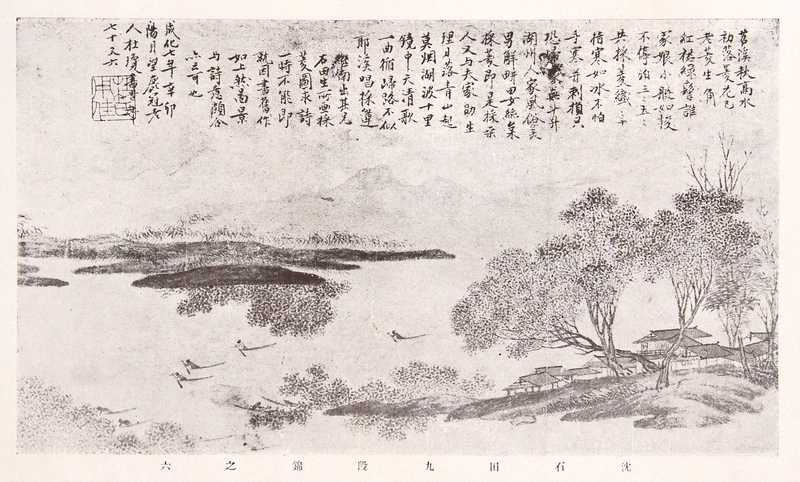 苕溪秋高水
初落菱花已
老菱生角
紅裙綠髻誰
家娘小艇如梭
不停泊三三五五
共採菱纖纖十
指寒如冰不怕
手寒并刺損只
恐
湖州人家風俗美
男解耕田女絲枲
採菱即是採桑
人又与夫家助生
理日落青山起
莫烟湖波十里
鏡中天清歌
一曲櫂歸路不似
耶溪唱採蓮
繼南出其兄
石田生所畫採
菱圖求詩
一時不能即
就因書舊作
如上然高景
与詩意頗合
六言可也
成化七年辛卯
陽月望鹿冠老
人杜瓊書時年
七十又六
沈石田九段錦之六